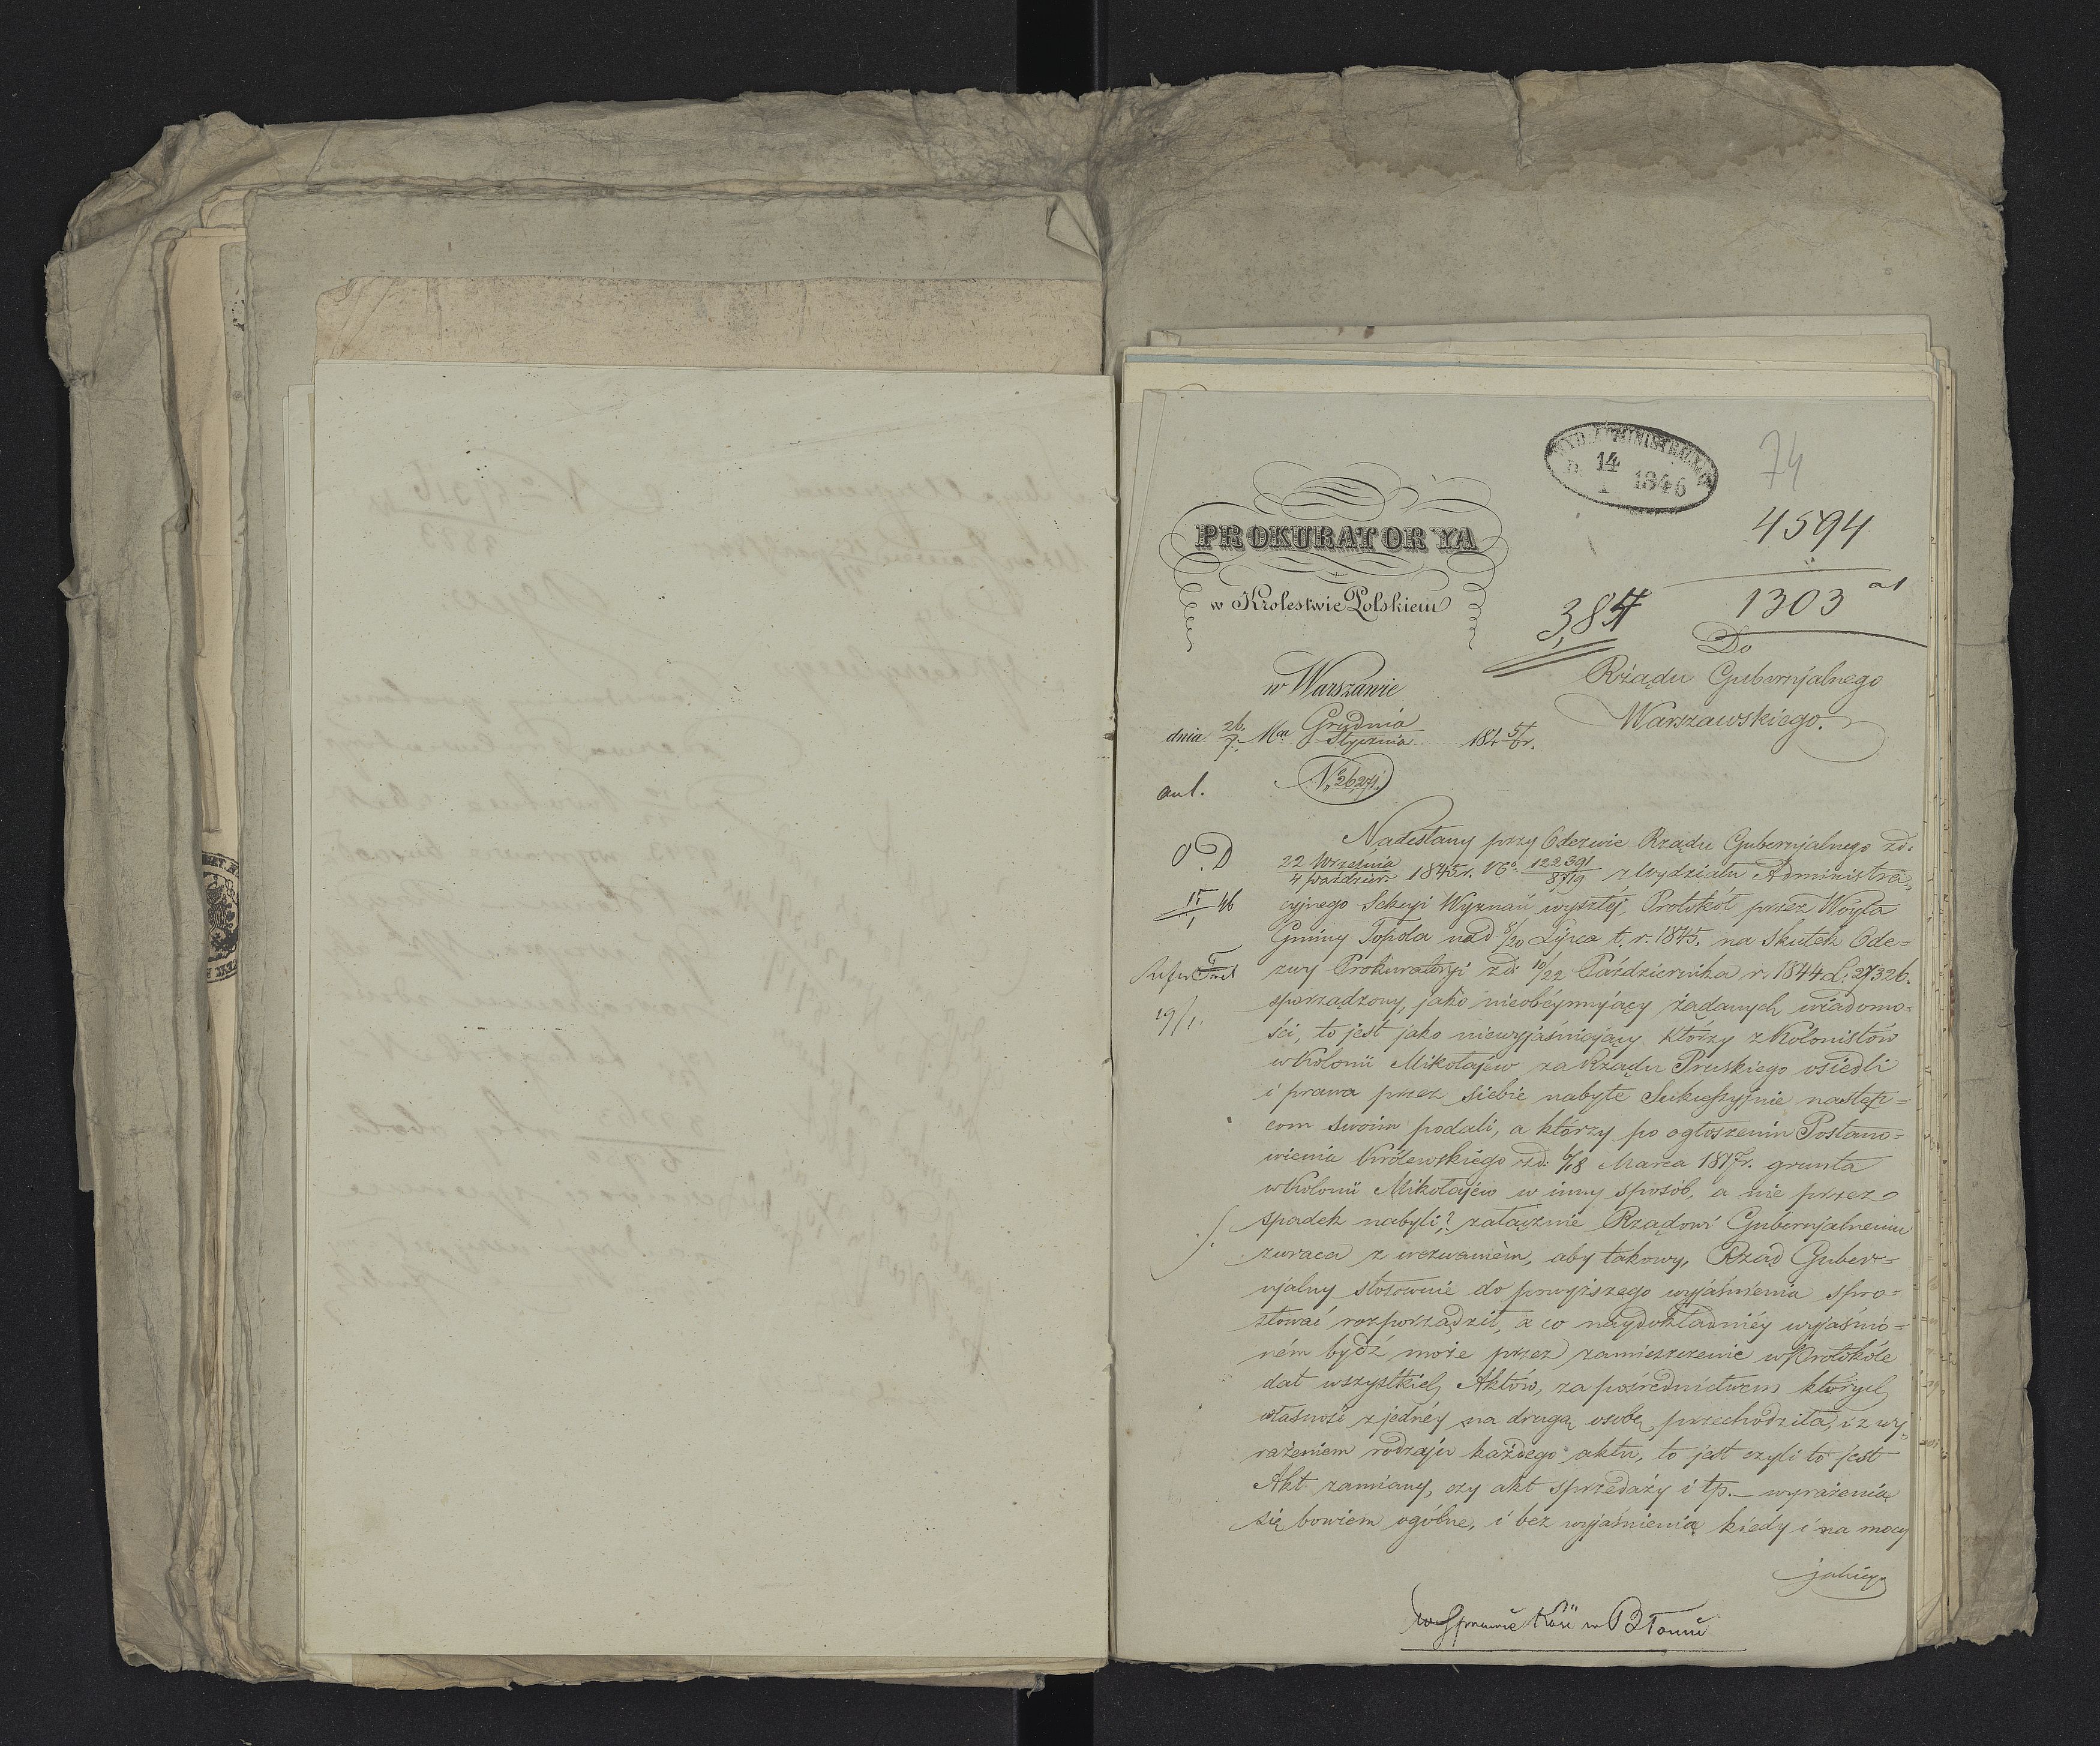 WYD. ADMINISTRACYJNY
D. 14/1 1846
74
4594
1303
3,857
PROKURATORYA
w Krolestwie Polskiem
Do
Rządu Gubernjalnego
Warszawskiego.
w Warszawie
dnia 26/7 Mca Grudnia/Stycznia 184 5/6 r.
No 26,271.
Nadesłany przy Odezwie Rządu Gubernjalnego zd:
22 Września/4 Paździer: 1845r. No 122391/8719 z Wydziału Administra„
cyjnego Sekcyi Wyznań wyszłéj, Protokół przez Wójta
Gminy Topola nad 8/20 Lipca t. r. 1845. na skutek Ode=
zwy Prokuratoryi zd: 10/22 Października r. 1844 L: 27326.
sporządzony, jako nieobéymujący żądanych wiadomo=
ści, to jest jako niewyjaśniający którzy z Kolonistów
w Kolonii Mikołajew za Rządu Pruskiego osiedli
i prawa przez siebie nabyte Sukcessyjnie następ=
com swoim podali, a którzy po ogłoszeniu Postano=
wienia Królewskiego zd: 6/18 Marca 1817r. grunta
w Kolonii Mikołajew w inny sposób, a nie przez
spadek nabyli? załącznie Rządowi Gubernjalnemu
zwraca z wezwaniem, aby takowy, Rząd Guber=
njalny stosownie do powyższego wyjaśnienia spro=
stować rozporządził, a co naydokładniéy wyjaśnio=
ném bydź może przez zamieszczenie w Protokóle
dat wszystkich Aktów, za pośrednictwem których
własność z jednéy na drugą osobę przechodziła, i z wy„
rażeniem rodzaju każdego aktu, to jest czyli to jest
Akt zamiany, czy akt sprzedaży i tp. — wyrażenia
się bowiem ogólne, i bez wyjaśnienia kiedy i na mocy
jakiego
w Sprawie Kości w Błoniu